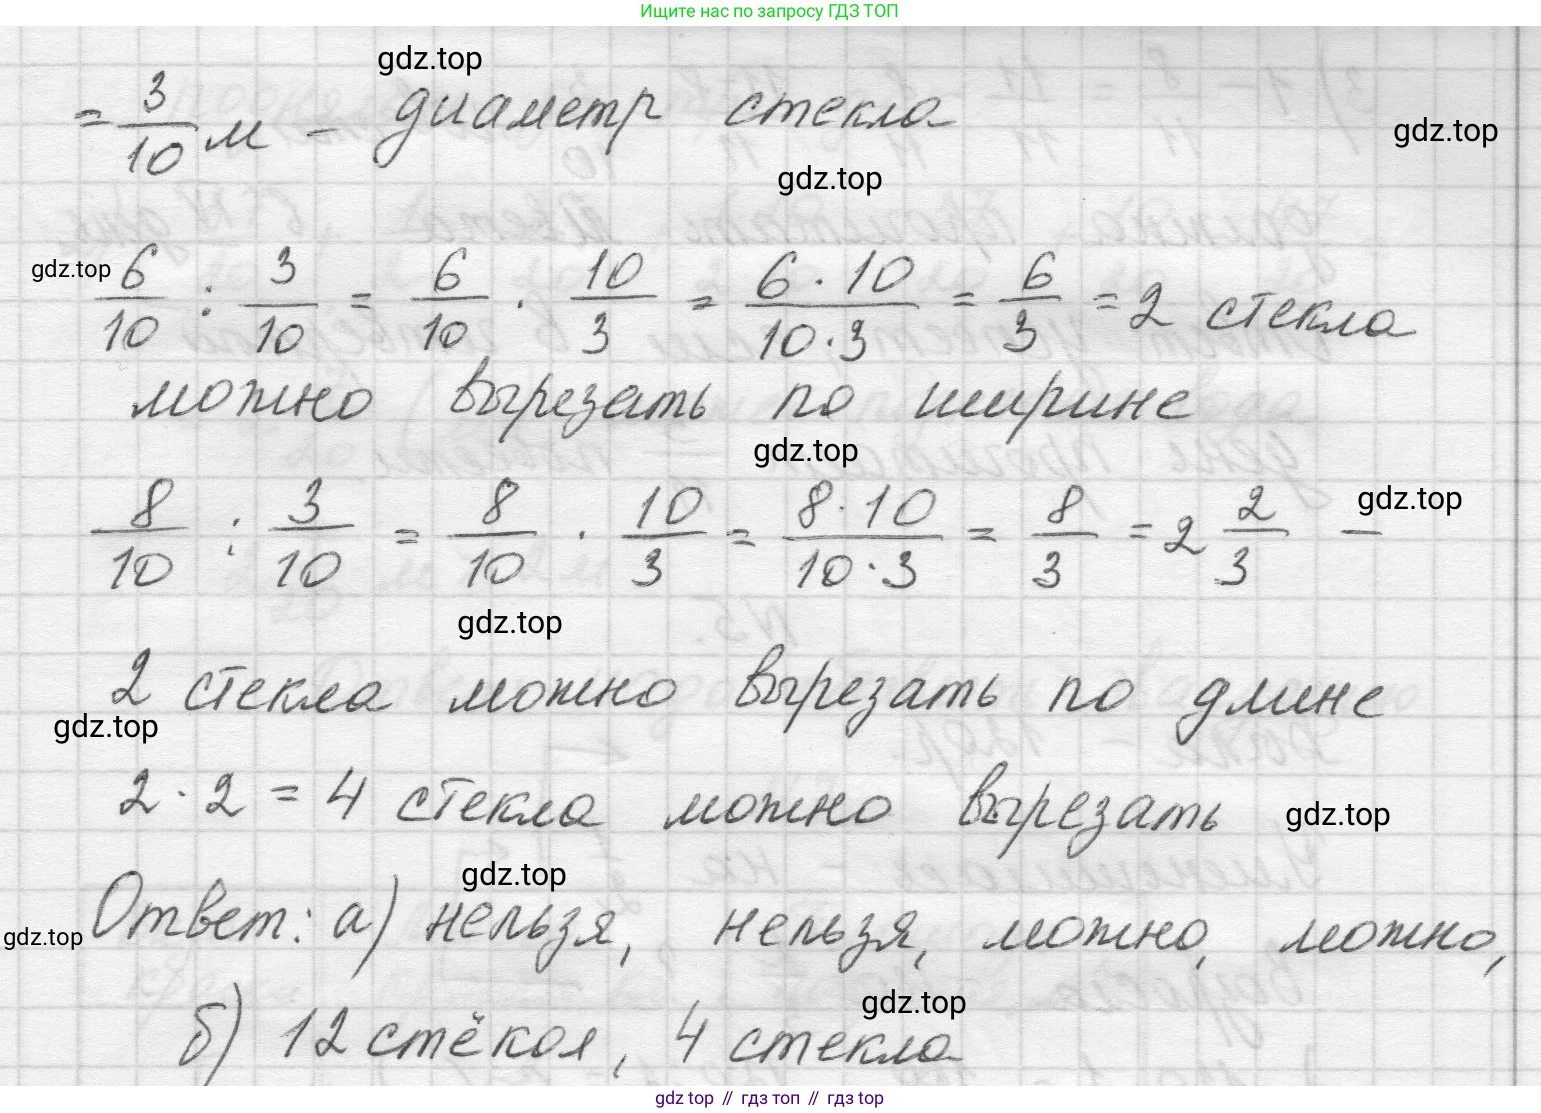 Ищите нас по запросу ГДЗ ТОП
gdz.top
= 3/10 м – диаметр стекла
gdz.top
gdz.top
gdz.top
6/10 : 3/10 = 6/10 · 10/3 = 6·10/10·3 = 6/3 = 2 стекла
можно вырезать по ширине
gdz.top
gdz.top
8/10 : 3/10 = 8/10 · 10/3 = 8·10/10·3 = 8/3 = 2 2/3 –
gdz.top
2 стекла можно вырезать по длине
gdz.top
2 · 2 = 4 стекла можно вырезать
gdz.top
gdz.top
Ответ: а) нельзя, нельзя, можно, можно,
gdz.top
gdz.top
б) 12 стёкол, 4 стекла
gdz.top // гдз топ // гдз.top